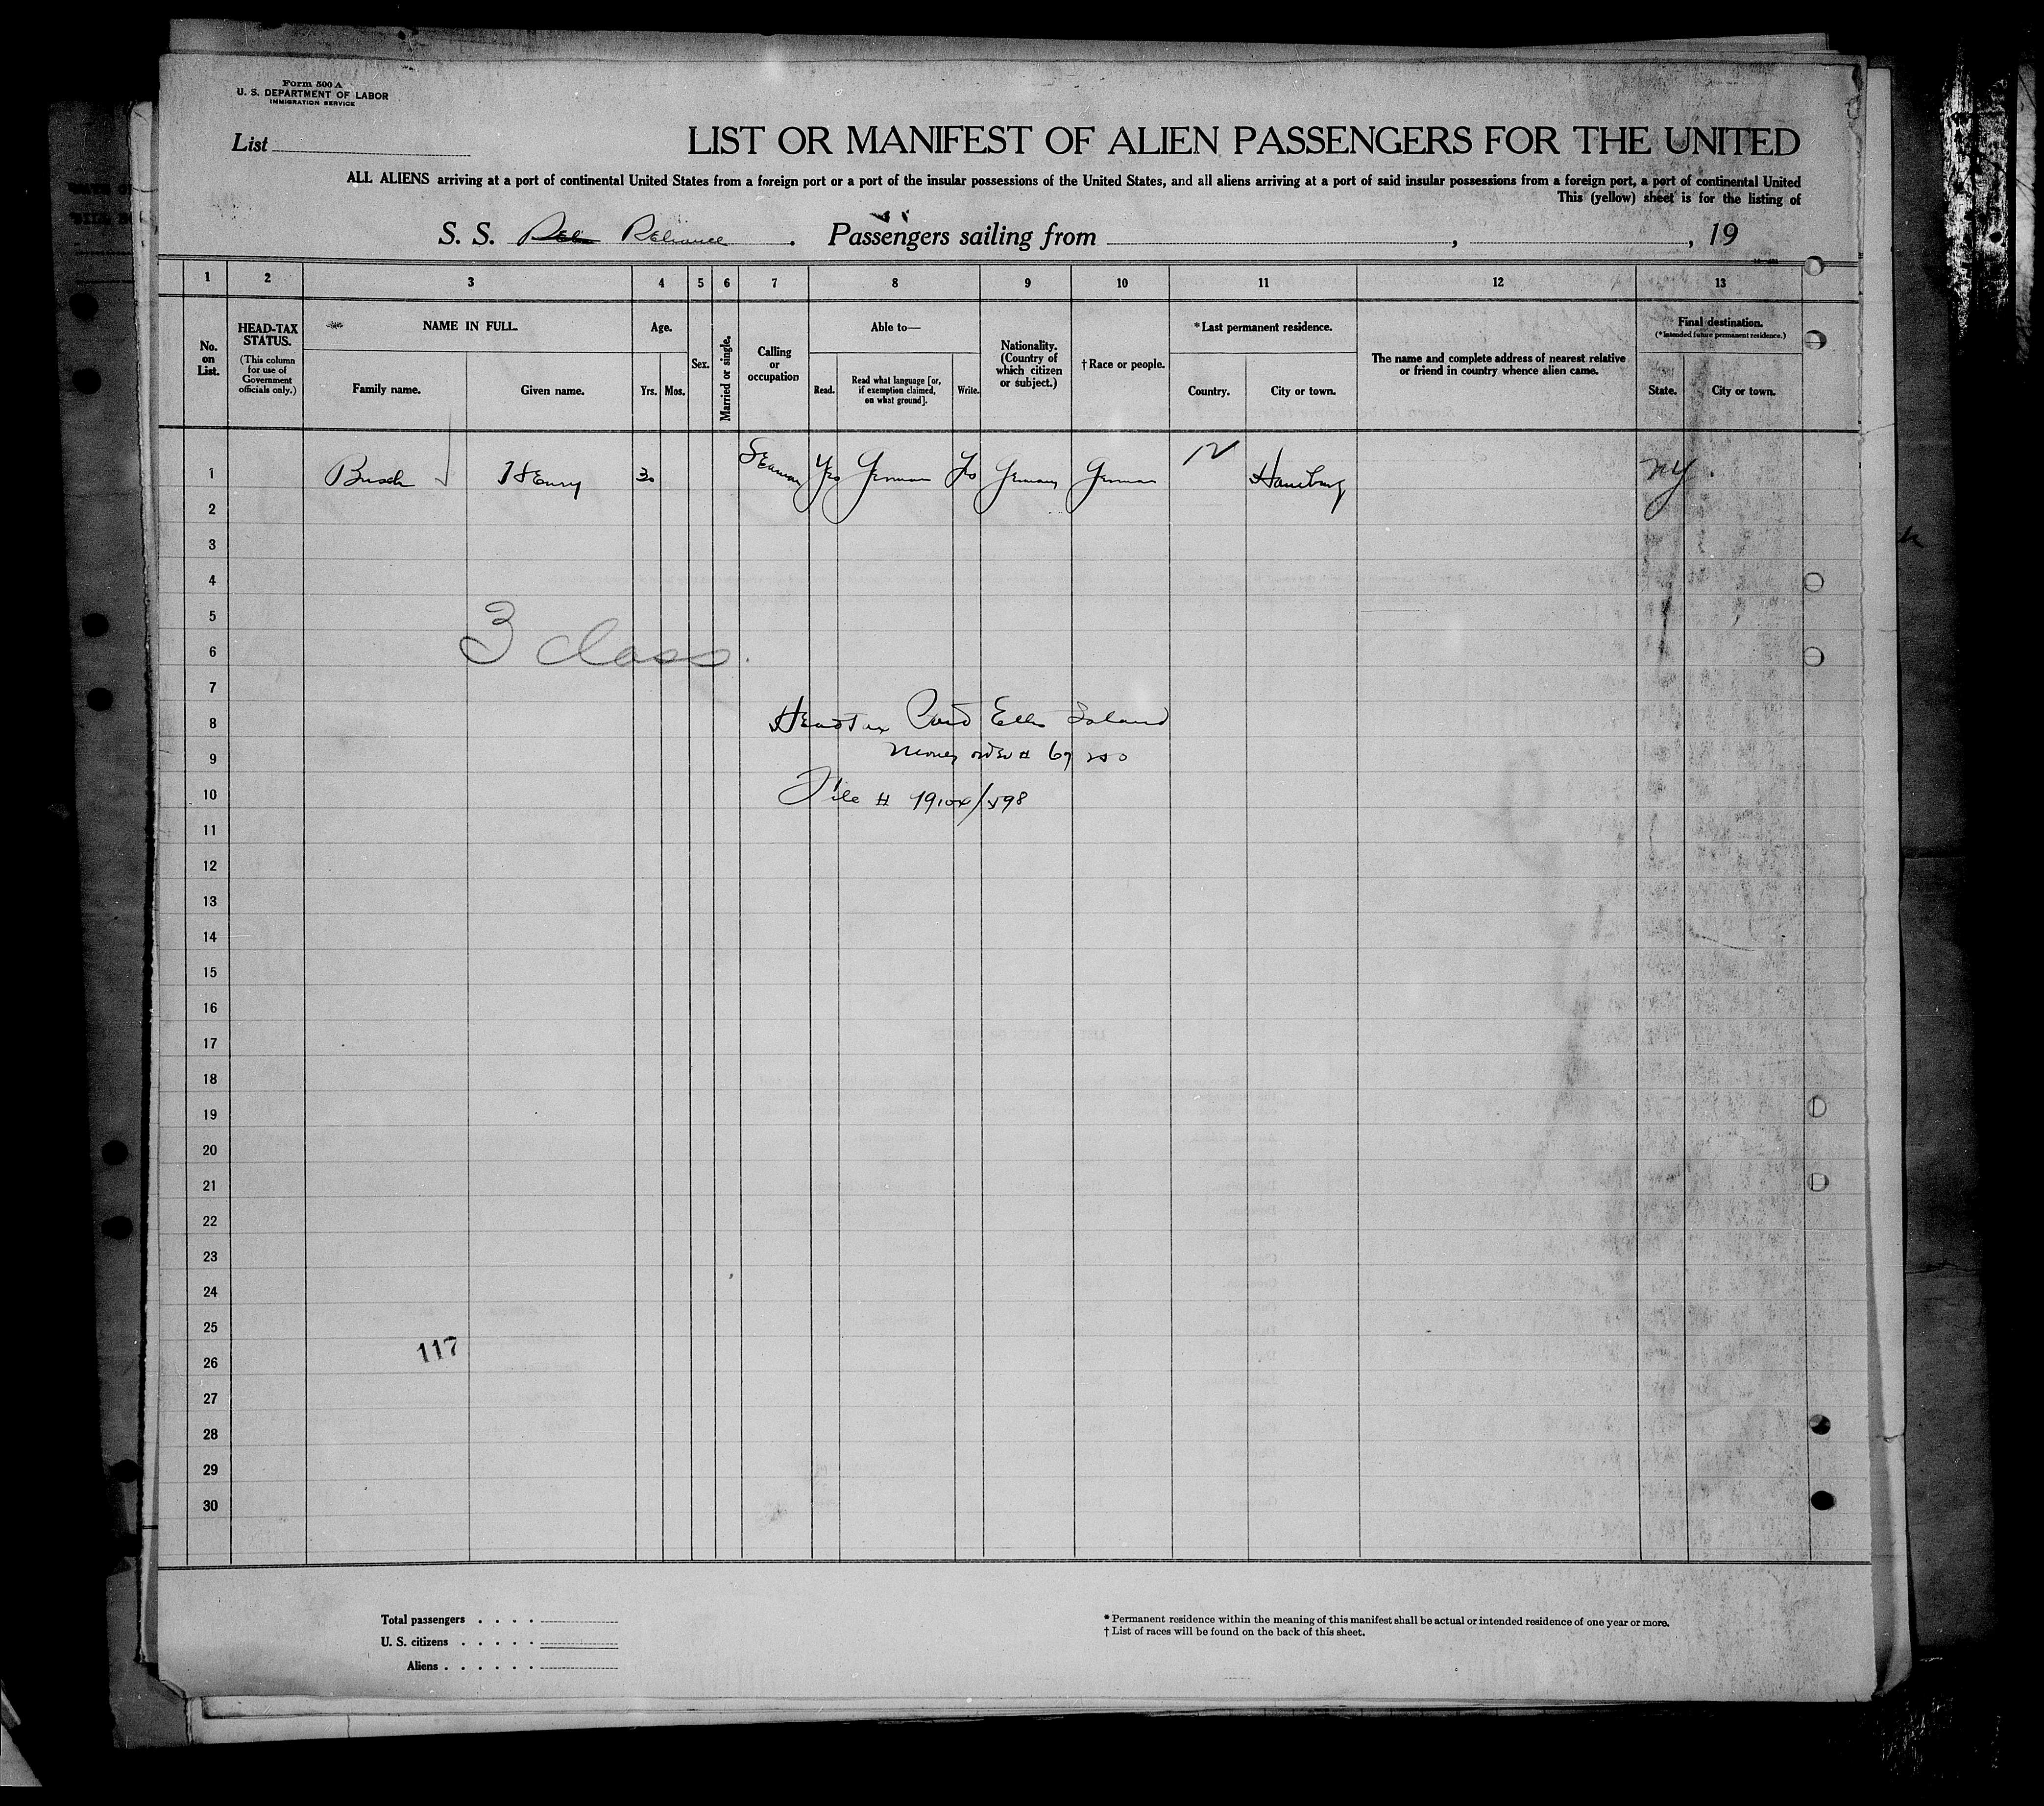 Form 500 A
U. S. DEPARTMENT OF LABOR
IMMIGRATION SERVICE
List
LIST OR MANIFEST OF ALIEN PASSENGERS FOR THE UNITED
ALL ALIENS arriving at a port of continental United States from a foreign port or a port of the insular possessions of the United States, and all aliens arriving at a port of said insular possessions from a foreign port, a port of continental United
This (yellow) sheet is for the listing of
S. S. Rel Reliance . Passengers sailing from , , 19
1 2 3 4 5 6 7 8 9 10 11 12 13
No. on List.
HEAD-TAX STATUS.
(This column for use of Government officials only.)
NAME IN FULL.
Family name. Given name.
Age.
Yrs. Mos.
Sex.
Married or single.
Calling or occupation
Able to—
Read. Read what language [or, if exemption claimed, on what ground]. Write.
Nationality. (Country of which citizen or subject.)
† Race or people.
* Last permanent residence.
Country. City or town.
The name and complete address of nearest relative or friend in country whence alien came.
Final destination.
(* Intended future permanent residence.)
State. City or town.
1 Busch Henry 30 Seaman Yes German Yes Germany German 12 Hamburg NY.
2
3
4
5
3 class.
6
7
8 Head Tax Paid Ellis Island
9 Money order #
10 File #
11
12
13
14
15
16
17
18
19
20
21
22
23
24
25
117
26
27
28
29
30
Total passengers . . . .
U. S. citizens . . . . .
Aliens . . . . . .
* Permanent residence within the meaning of this manifest shall be actual or intended residence of one year or more.
† List of races will be found on the back of this sheet.